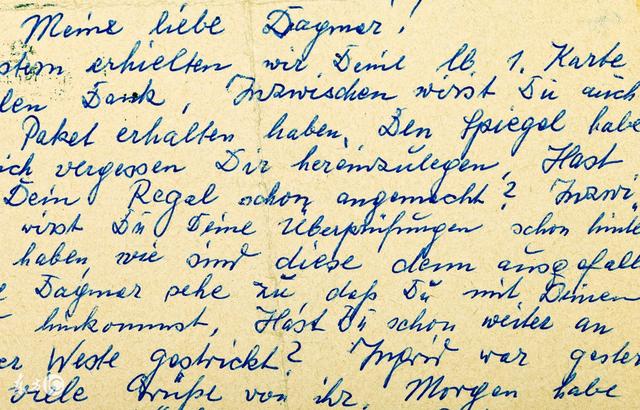 Meine liebe Dagmar!
stern erhielten wir Deine lb 1. Karte
len Dank, Inzwischen wirst Du auch
Paket erhalten haben. Den Spiegel habe
ich vergessen Dir hereinzulegen, Hast
Dein Regal schon angemacht? Inzwi
wirst Du Deine Überprüfungen schon hinte
haben, wie sind diese denn ausgefall
e Dagmar sehe zu daß Du mit Deinem
hinkommst, Hast Du schon weiter an
er Weste gestrickt? Ingrid war gester
viele Grüße von ihr. Morgen habe